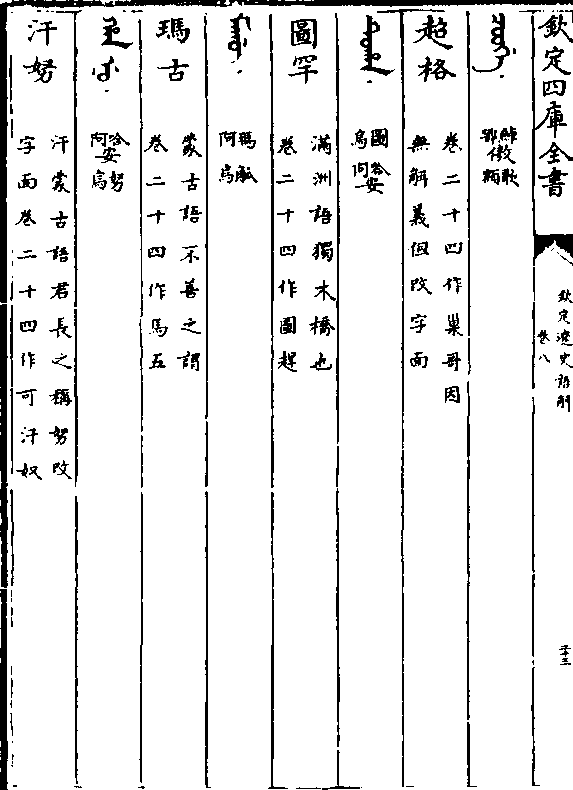 欽定四庫全書
欽定遼史語解
卷八
超格
卷二十四作巢哥因
無解義但改字面
圖哈安
烏阿
圖罕
滿洲語獨木橋也
卷二十四作圖趕
瑪觚
阿烏
瑪古
蒙古語不善之謂
卷二十四作馬五
哈安努
阿烏
汗努
汗蒙古語君長之稱努改
字面卷二十四作可汗奴